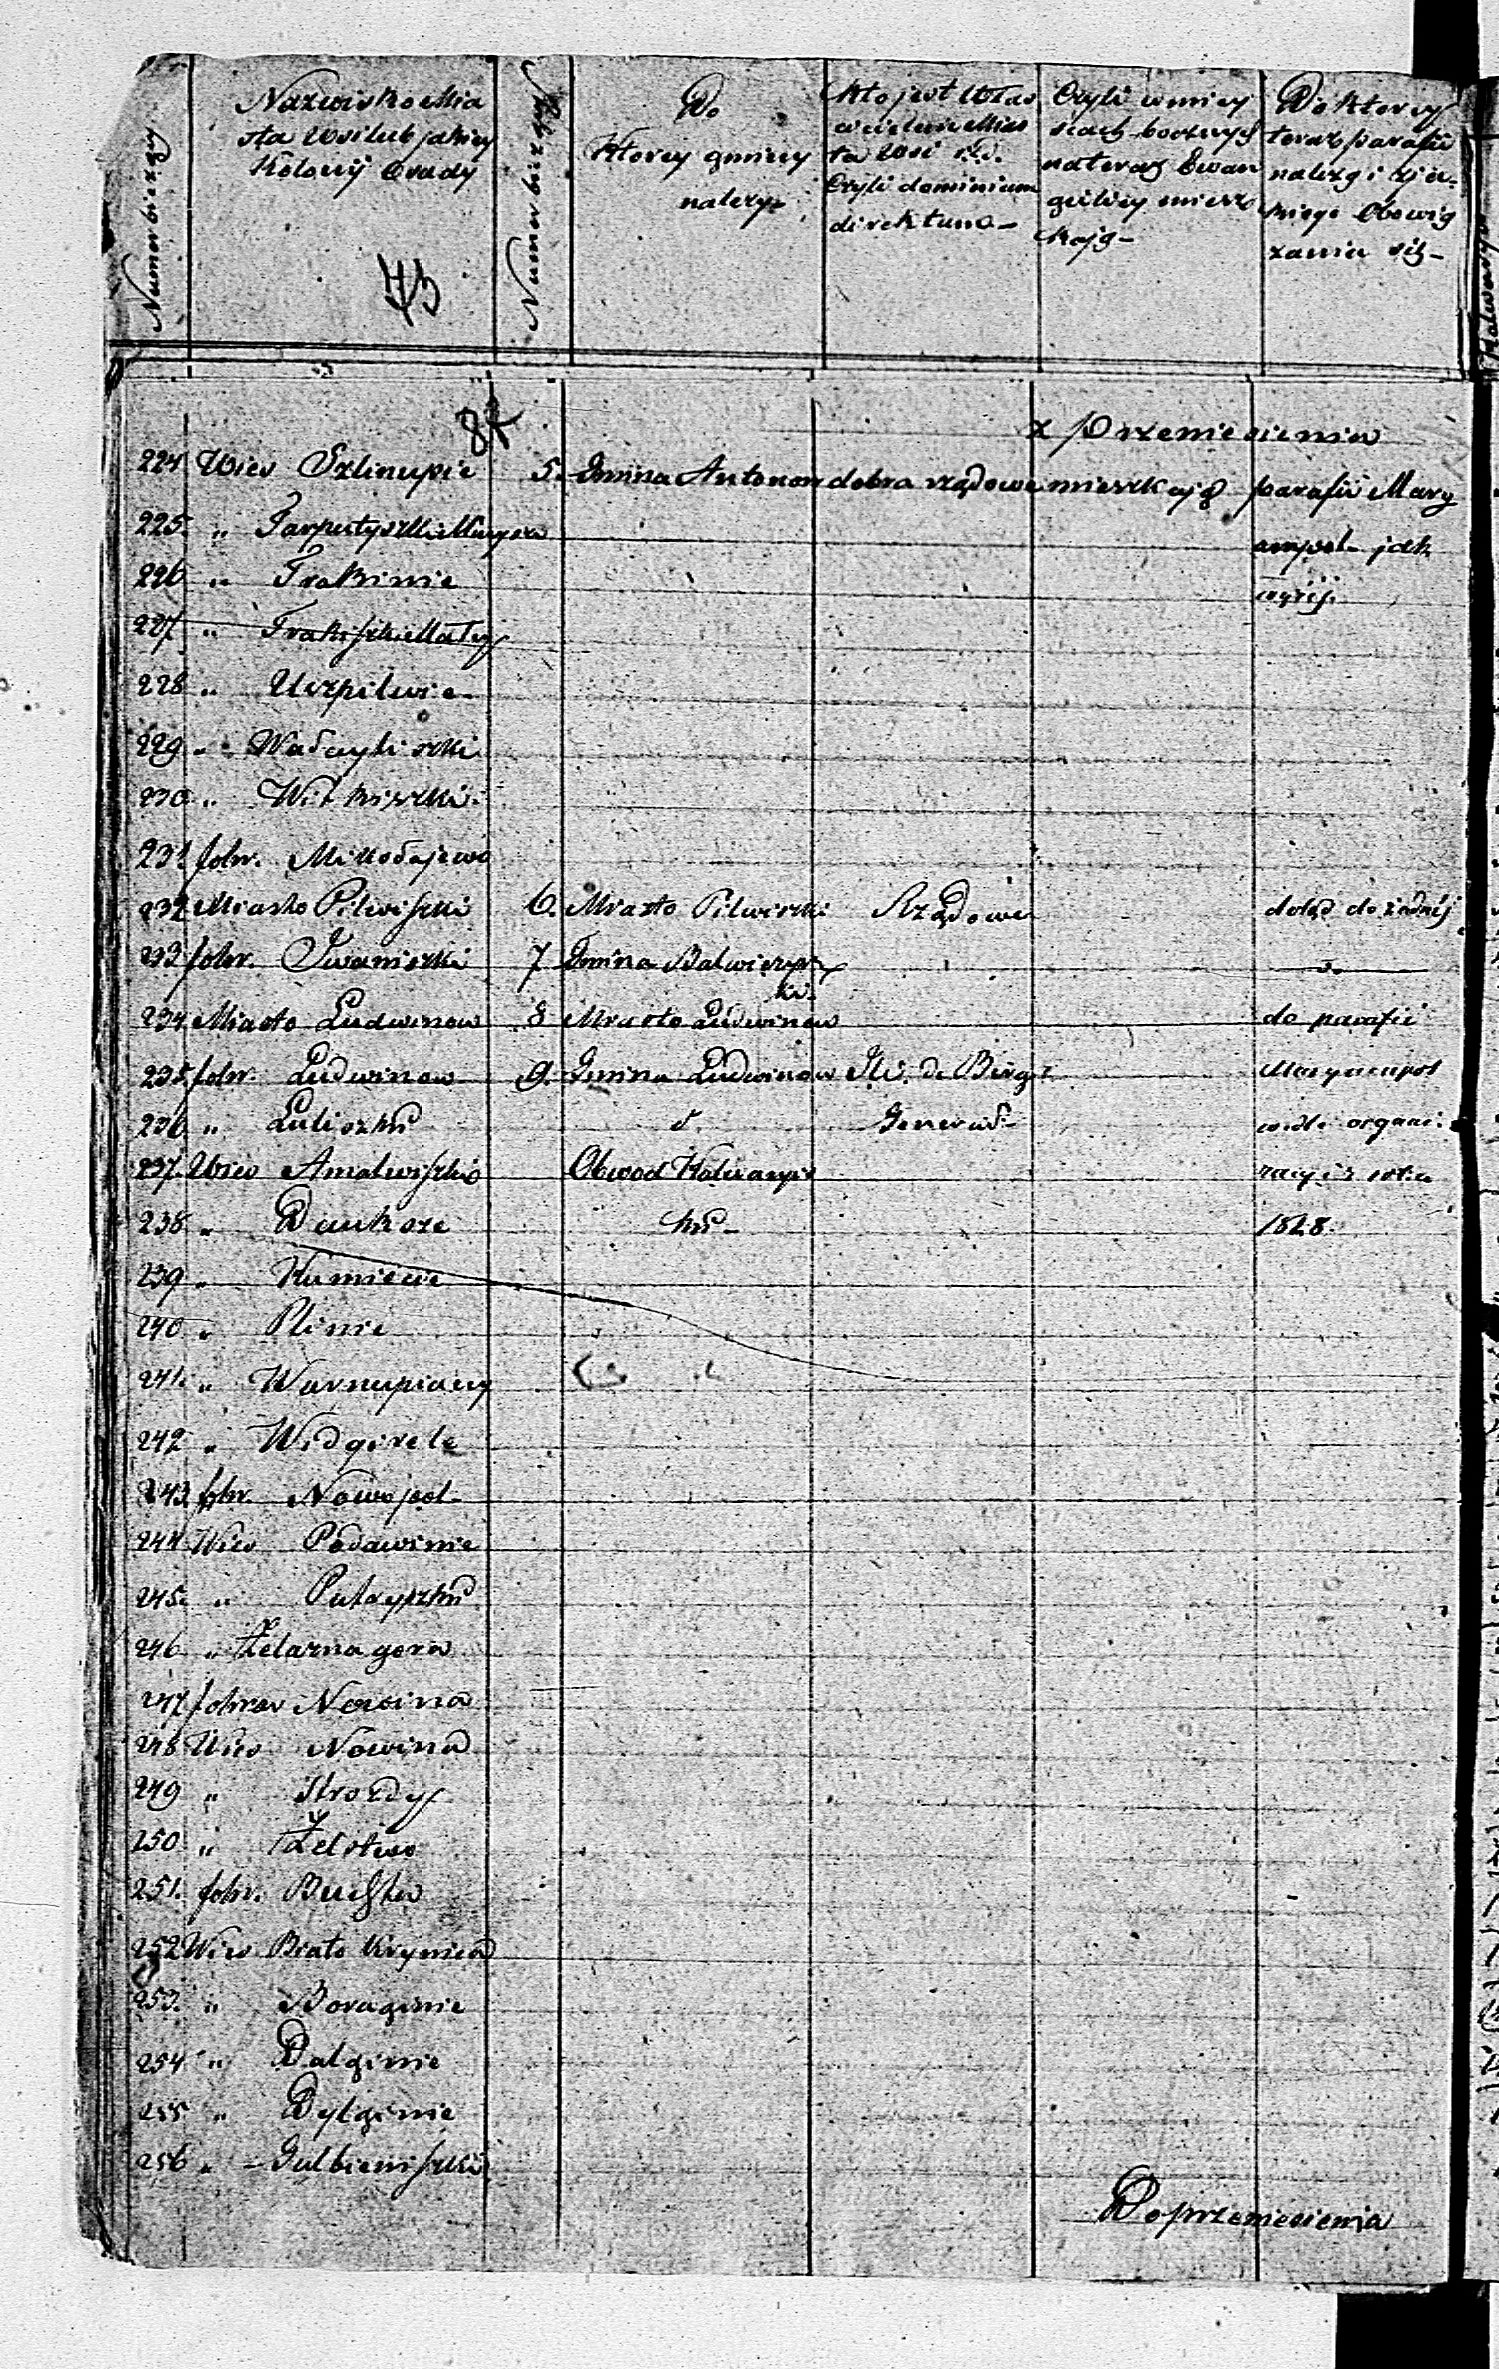 Numer bierzący
Nazwisko Mia
sta Wsi lub jakiey
Kolonij Osady
73
Numer bierzący
Do
Ktorey gminy
należy
Kto jest Właś
cicielem Mias
ta Wsi
Czyli dominium
direktum
Czyli w miey
scach bocznych
na teraz Ewan
gelicy miesz
kają
Do Ktorey
teraz parafii
należą i z ja
kiego Obowią
zania się
87
z przeniesienia
224 Wies Szlinupie 5. Gmina Antonow dobra rządowe mieszkają parafii Mary
225. " Tarputyszki
ampol jak
226 " Trakinie
wyżej.
227. " Trakiszki Małe
228 " Uszpilwie
229 "
230 " Witkiszki
231 folw. Mikołajewo
232 Miasto Pilwiszki 6. Miasto Pilwiszki Rządowe dotąd do żadnej
233 folw. Iwaniszki 7 Gmina Balwierzysz
ki
234. Miasto Ludwinow 8 Miasto Ludwinow do parafii
235. folw. Ludwinow 9. Gmina Ludwinow de Berg Maryampol
236 " Luliszki d. Generał wedle organi
237. Wies Amalwiszki Obwod Kalwaryi zacyi z roku
238 " Dauksze ski 1828.
239 " Kumiecie
240 " Plinie
241. " Warnupiany
242 " Widgirele
243. folw. Nowopol
244 Wies Podawinie
245. " Putryszki
246 " Żelazna gora
247 folwar Nowina
248 Wies Nowina
249 " Strozdy
250 " Żelstwo
251. folw. Buchta
252 Wies Biała Krynica
253. " Boraginie
254 " Dalginie
255 " Dylginie
256 " Gulbieniszki
Do przeniesienia